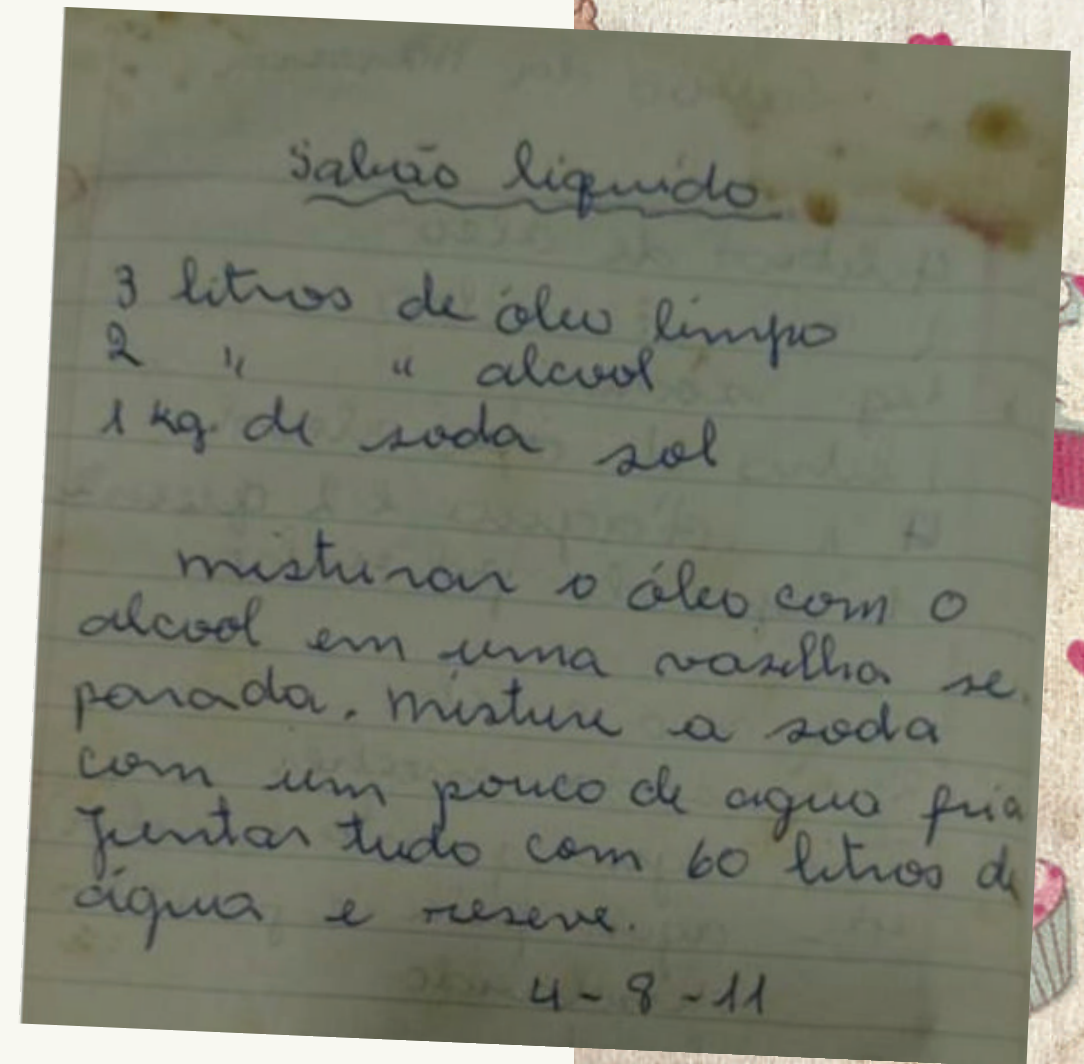 Sabão líquido
3 litros de óleo limpo
2 " " alcool
1 kg. de soda sol
misturar o óleo com o
alcool em uma vasilha se.
parada. misture a soda
com um pouco de agua fria
Juntar tudo com 60 litros de
água e reserve.
4-8-11